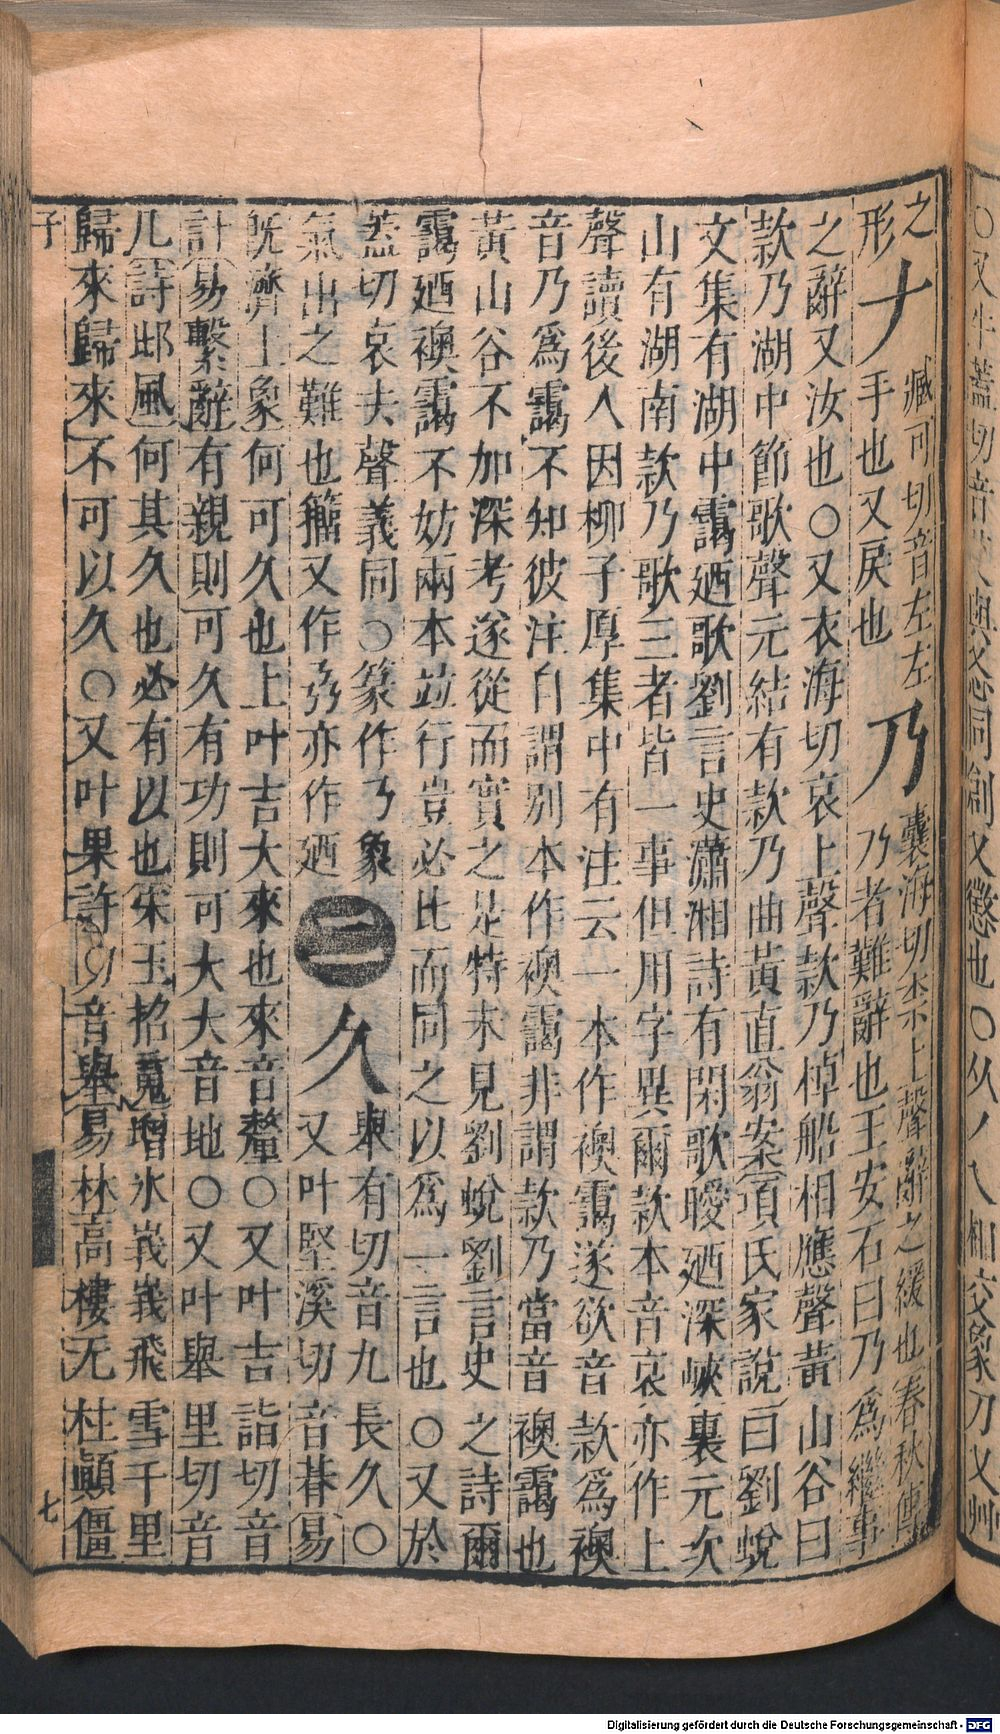 之臧可切音左左
形𠂇手也又戾也
乃囊海切柰上聲辭之緩也春秋傳
乃者難辭也王安石曰乃爲繼事
之辭又汝也○又衣海切哀上聲款乃棹船相應聲黃山谷曰
款乃湖中節歌聲元結有款乃曲黃直翁案項氏家說曰劉蛻
文集有湖中靄廼歌劉言史瀟湘詩有閑歌曖廼深峽裏元次
山有湖南款乃歌三者皆一事但用字異爾款本音哀亦作上
聲讀後人因柳子厚集中有注云一本作襖靄遂欲音款爲襖
音乃爲靄不知彼注自謂別本作襖靄非謂款乃當音襖靄也
黃山谷不加深考遂從而實之是特未見劉蛻劉言史之詩爾
靄廼襖靄不妨兩本竝行豈必比而同之以爲一言也○又於
蓋切哀去聲義同○篆作乃象
氣出之難也籀又作𠄕亦作廼
三
久舉有切音九長久○
又叶堅溪切音朞易
旣濟上象何可久也上叶吉大來也來音釐○又叶吉詣切音
計易繫辭有親則可久有功則可大大音地○又叶舉里切音
几詩邶風何其久也必有以也宋玉招䰟增氷峩峩飛雪千里
歸來歸來不可以久○又叶果許切音舉易林高樓无柱顚僵
子
七
○又牛蓋切音艾與㣻同創又懲也○从丿乀相交象刀又艸
Digitalisierung gefördert durch die Deutsche Forschungsgemeinschaft - DFG